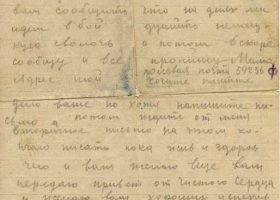 вам сообщить что на днях мы
идем в бой
сволоч а потом вскоре
сообщу и все
адрес мой полевая почта 39236 ф
хочите пишите
дело ваше но хочу напишите пи-
сьмо а потом ждите от меня
вторичное письмо на этом ко-
нчаю писать пока жив и здоров
чего и вам желаю еще вам
передаю привет от чистого сердца
и желаю вам хороших успехов